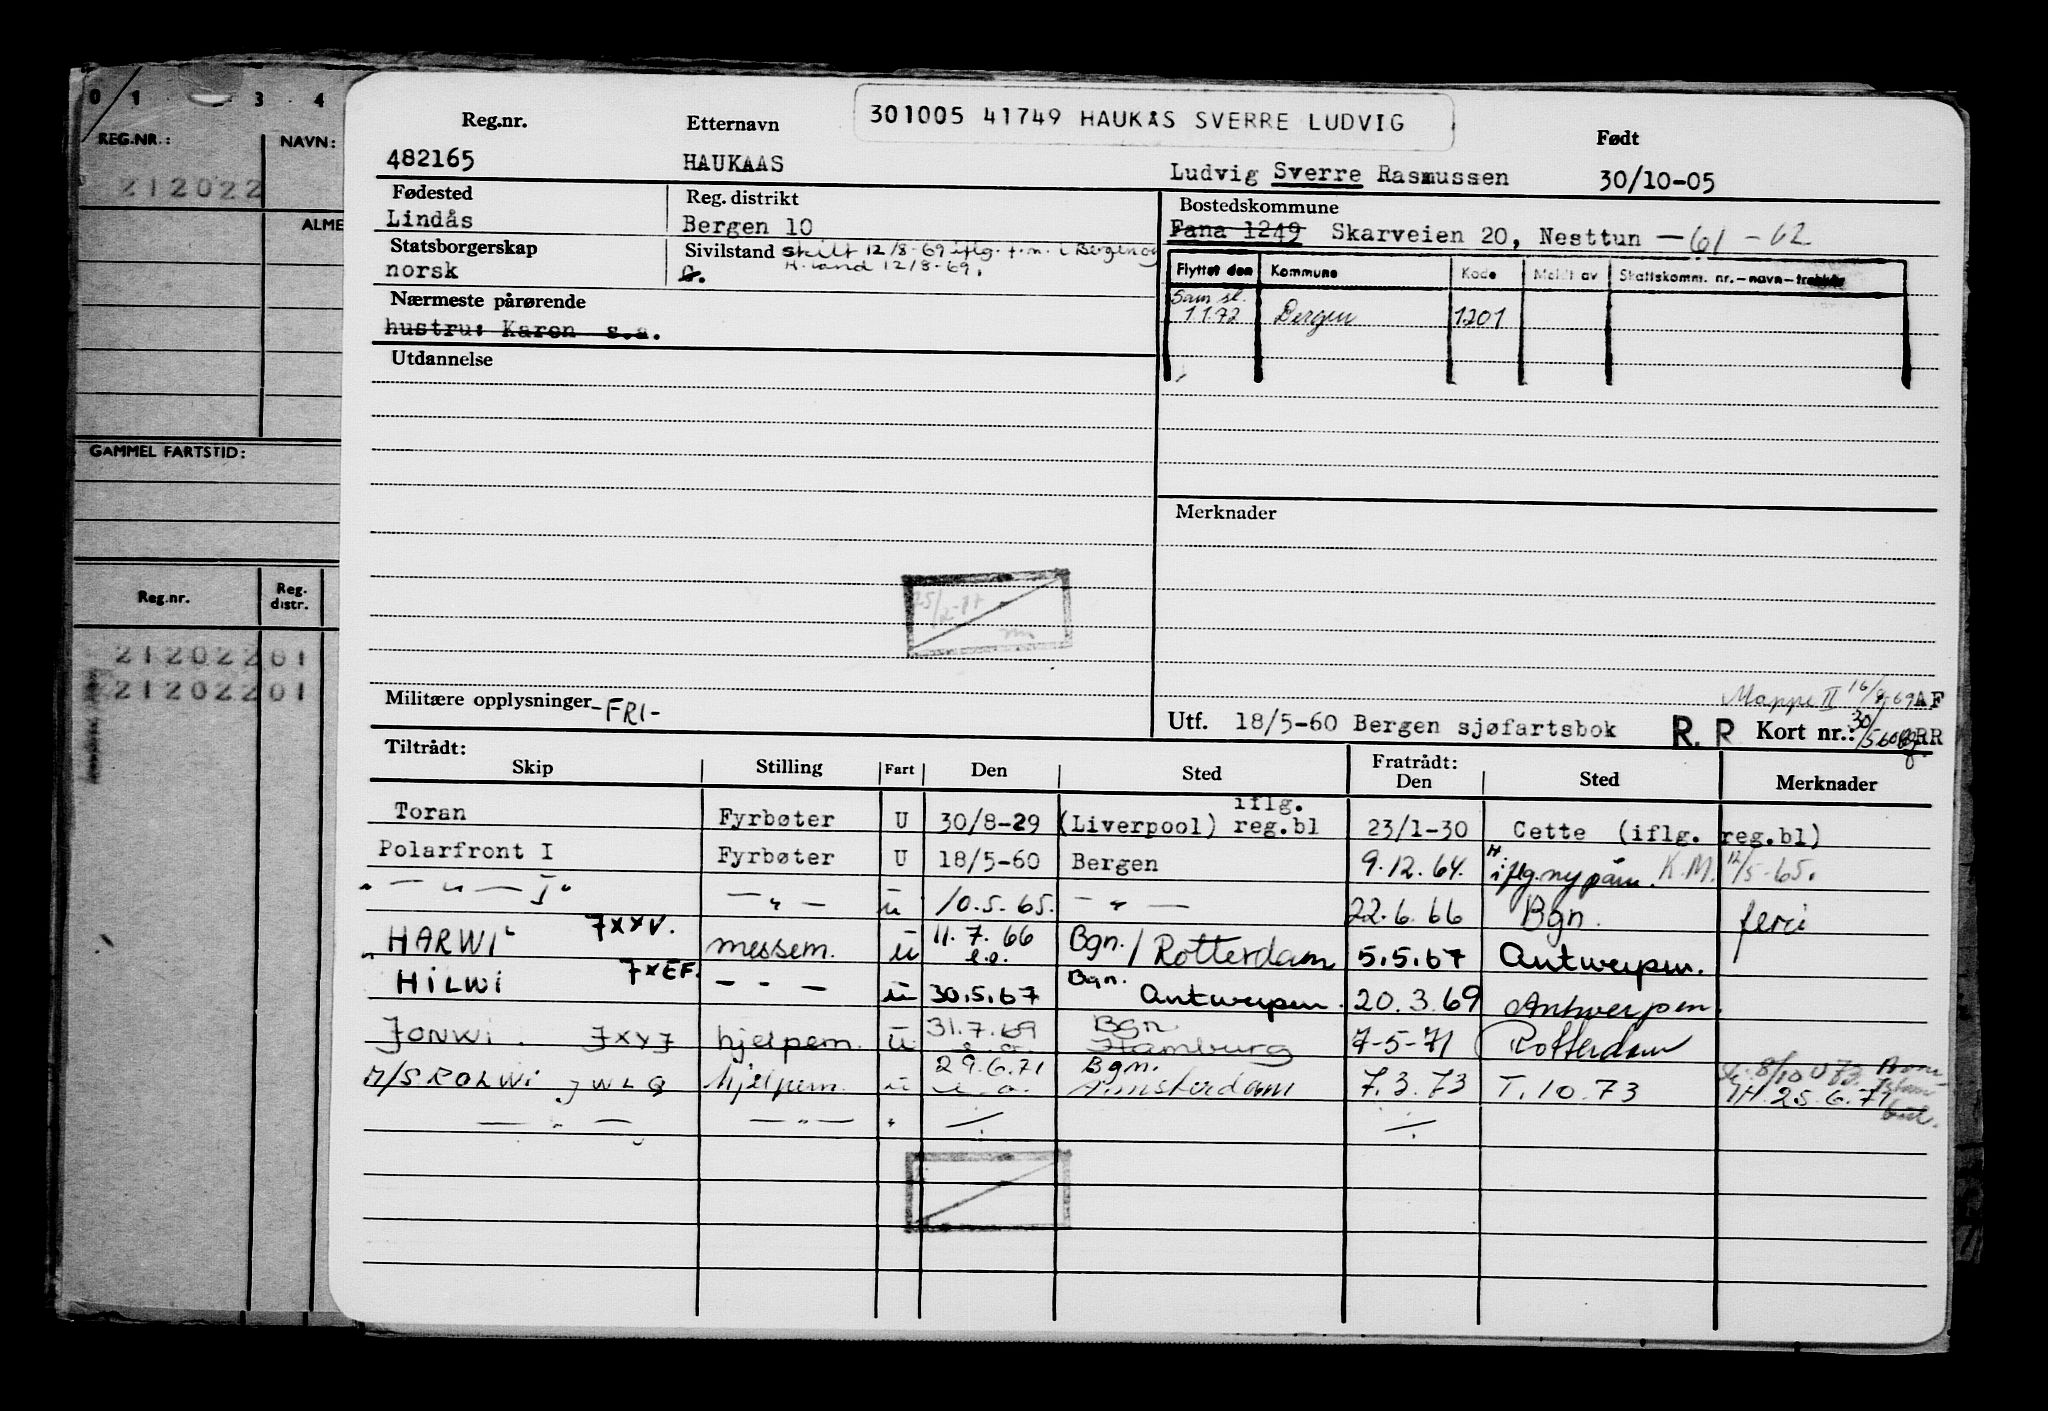 0 1 3 4
REG.NR.: NAVN:
212022
ALME
GAMMEL FARTSTID:
Reg.nr. Reg. distr.
21202201
21202201
301005 41749 HAUKÅS SVERRE LUDVIG
Reg.nr. Etternavn Født
482165 HAUKAAS Ludvig Sverre Rasmussen 30/10-05
Fødested Reg. distrikt Bostedskommune
Lindås Bergen 10 Fana 1249 Skarveien 20, Nesttun -61 -62
Statsborgerskap Sivilstand skilt 12/8-69 iflg. f.m. i Bergen og
norsk G. H.land 12/8-69.
Flyttet den Kommune Kode Meldt av Skattskomm. nr.-navn-
Nærmeste pårørende Sam st.
hustru: Karen s.a. 1172 Bergen 1201
Utdannelse
Merknader
25/2-77
Militære opplysninger -FRI-
Mappe II 16/9-69 AF
Utf. 18/5-60 Bergen sjøfartsbok R. R Kort nr.: 30/5-60 RR
Tiltrådt: Fratrådt:
Skip Stilling Fart Den Sted Den Sted Merknader
Toran Fyrbøter U 30/8-29 (Liverpool) iflg. reg.bl 23/1-30 Cette (iflg. reg.bl)
Polarfront I Fyrbøter U 18/5-60 Bergen 9.12.64. iflg. ny påm. K.M. 12/5-65.
" — " — I " — " — U 10.5.65. — " — 22.6.66 Bgn. ferie
HARWI JXXV. messem. U 11.7.66 e.o. Bgn./Rotterdam 5.5.67 Antwerpen.
HILWI JXEF. — " — U 30.5.67 Bgn. Antwerpen. 20.3.69 Antwerpen.
JONWI. JXYJ hjelpem. U 31.7.69 e.o. Bgn. Hamburg 7-5-71 Rotterdam
M/S ROLWI JWLQ hjelpem. U 29.6.71 e.o. Bgn. Amsterdam 7.3.73 T.10.73 8/10 73 IH. 25.6.71
— " — — " — " ./. ./.